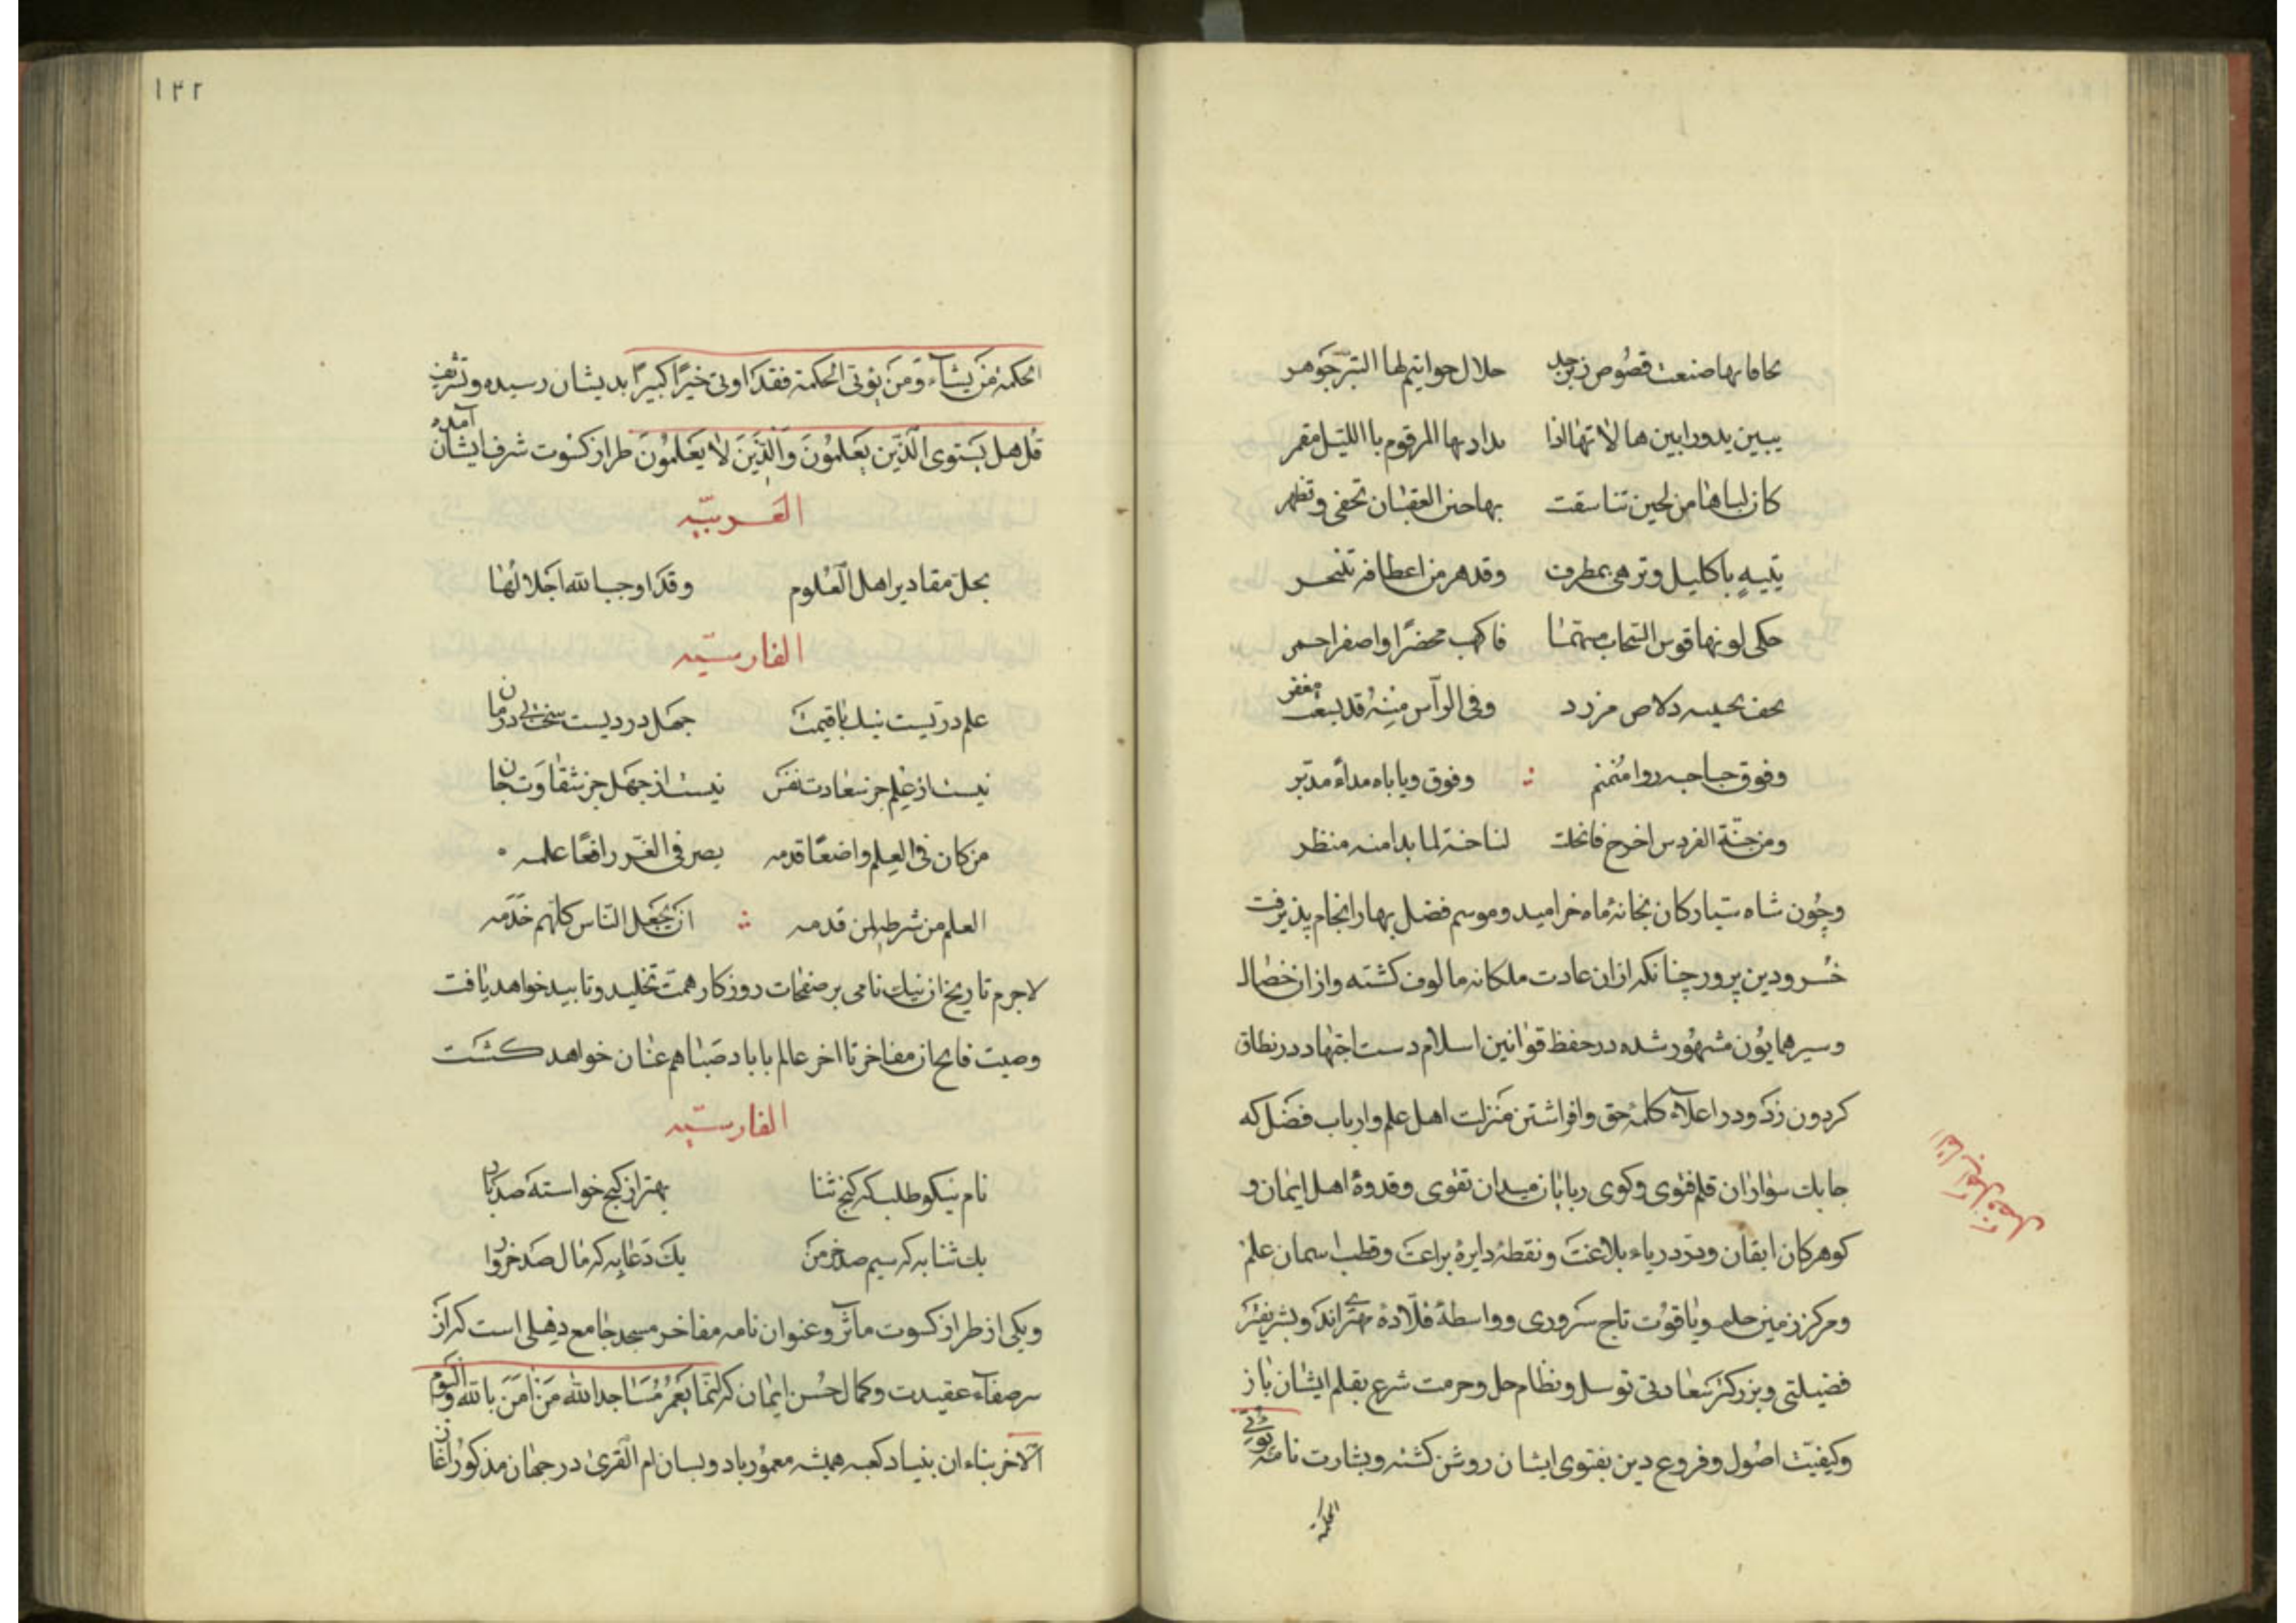 حلال حواتیم لها التبر جوهر
یبین بدورا بین هالاتها اذا بدا دیها المرقوم باللیل مقمر
کان لباها من لجین تناسقت بها حین العقبان تخفی وتظهر
یتیه باکلیل وتزهی بمطرف وقد هر من اعطافه تبختر
حکی لونها قوس السحاب
وفی الرأس منه قد یبعث مغفر
وفوق
ومن جنة الفردس اخرج فانجلت لنا خنة لما بدا منه منظر
وچون شاه ستیارکان بخانهٔ ماه خرامید وموسم فضل بهار انجام پذیرفت
خسرو دین پرور چنانکه از ان عادت ملکانه مالوف کشته واز ان خصال
وسیر همایون مشهور شده در حفظ قوانین اسلام دست اجتهاد در نطاق
کردون زد ودر اعلاء کلمهٔ حق وافراشتن منزلت اهل علم وارباب فضل که
جابك سواران قلم فتوی وکوی ربایان میدان تقوی وقدوهٔ اهل ایمان و
کوهر کان ایقان ودر دریاء بلاغت ونقطهٔ دایرهٔ براعت وقطب اسمان علم
ومرکز زمین حلم ویاقوت تاج سروری وواسطهٔ قلادهٔ مهتری اند وبشریفتر
فضیلتی وبزرکتر سعادتی توسل ونظام حل وحرمت شرع بقلم ایشان باز
وکیفیت اصول وفروع دین بفتوی ایشان روشن کشته وبشارت نامهٔ یؤتی
الحکمة
۱۴۲
الحکمة من یشاء ومن یؤتی الحکمة فقد اوتی خیرًا کبیرًا بدیشان رسیده وتشریف
قل هل یستوی الذین یعلمون والذین لا یعلمون طراز کسوت شرف ایشان آمده
العربیّه
بحل مقادیر اهل العلوم وقد اوجب الله اجلالها
الفارسیّه
علم دریست نیك باقیمت جهل دردیست سخت بی درمان
نیست از علم جز سعادت نفس نیست از جهل جز شقاوت جان
من کان فی العلم واضعًا قدمه بصر فی القدر رافعًا علمه
العلم من شرطه لمن قدمه ان یجعل الناس کلهم خدمه
لاجرم تاریخ ان نیك نامی بر صفحات روزکار همت تخلید وتابید خواهد یافت
وصیت فاتح ان مفاخر تا اخر عالم با باد صبا هم عنان خواهد کشت
الفارسیّه
نام نیکو طلب که کنج ثنا بهتر از کنج خواسته صد بار
یك ثنا به که سیم صد خرمن یك دعا به که مال صد خروار
ویکی از طراز کسوت ماثر وعنوان نامه مفاخر مسجد جامع دهلی است که از
سر صفاء عقیدت وکمال حسن ایمان که انما یعمر مساجد الله من امن بالله والیوم
الآخر بناء ان بنیاد کعبه همیشه معمور باد وبسان ام القری در جهان مذکور اغاز